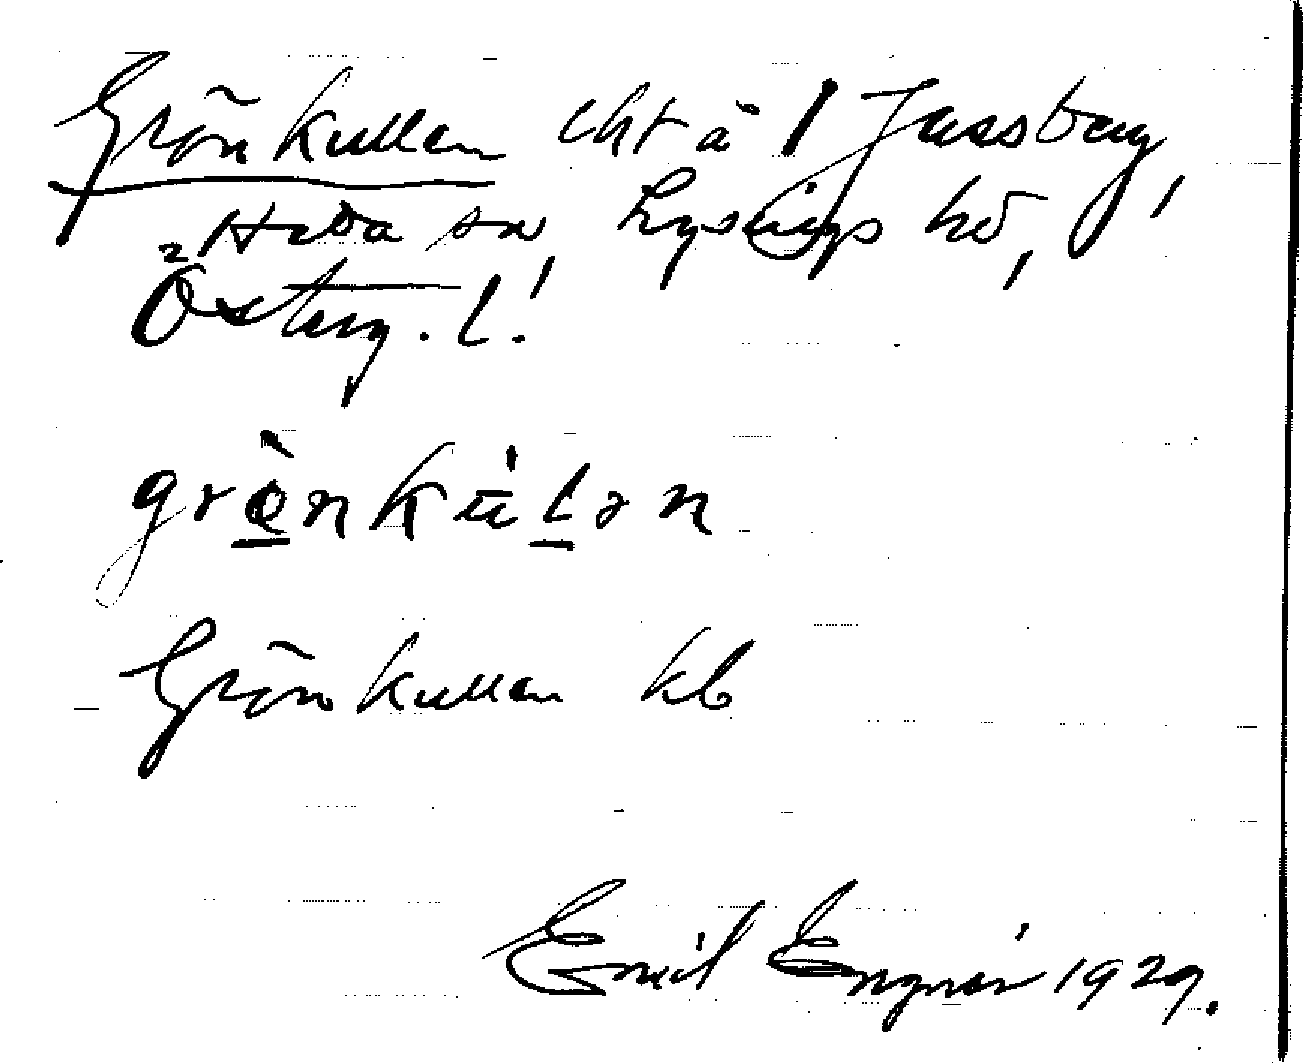 Grönkullen lht å 1 Jussberg,
Heda sn, Lysings hd,
Österg. l.
grö̀nkùlən
Grönkullen kb
Emil Engnér 1929.